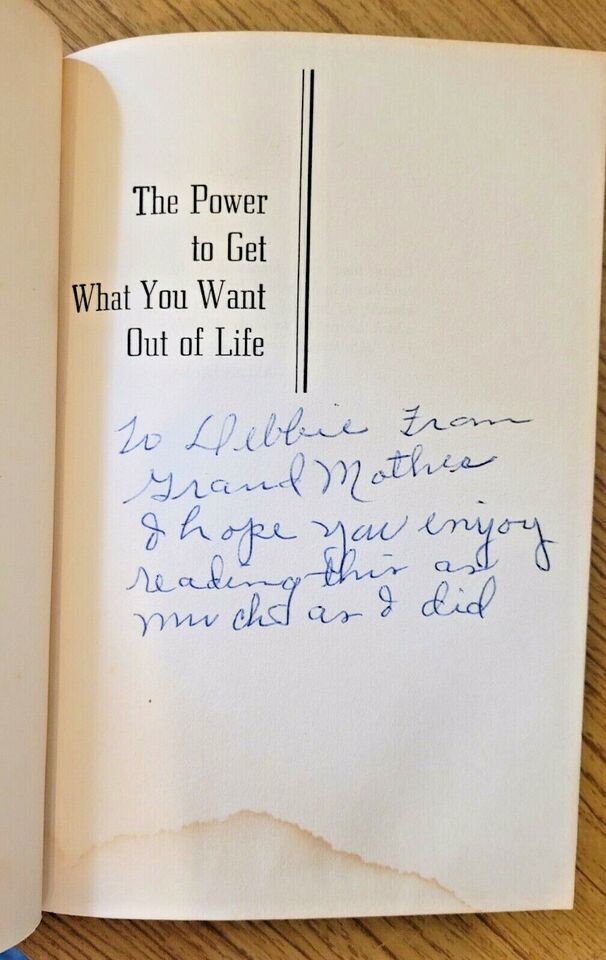 The Power
to Get
What You Want
Out of Life
To Debbie From
Grand Mother
I hope you enjoy
reading this as
much as I did